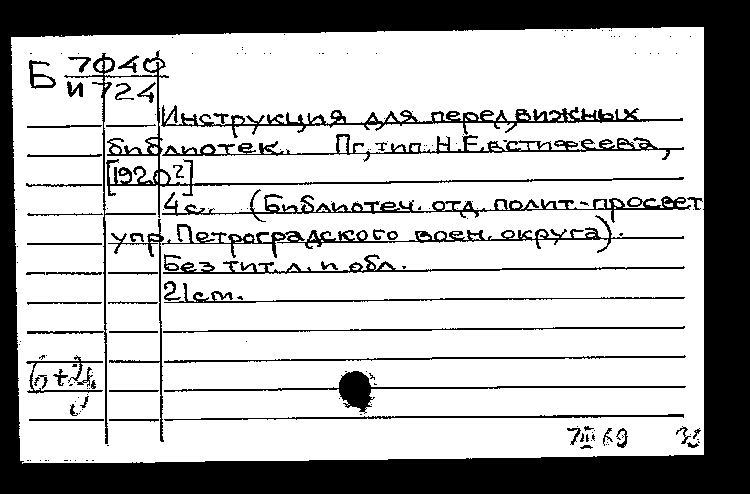 Б 7040
И 724
Инструкция для передвижных
библиотек. Пг, тип. Н. Евстифеева,
[1920?]
4 с. (Библиотеч. отд. полит.-просвет
упр. Петроградского воен. округа).
Без тит. л. и обл.
21 cm.
6+2
7 III 69